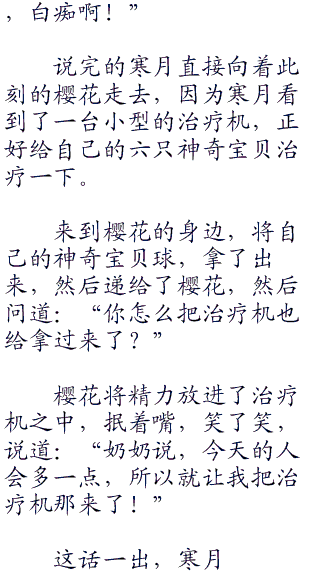 ，白痴啊！”
说完的寒月直接向着此
刻的樱花走去，因为寒月看
到了一台小型的治疗机，正
好给自己的六只神奇宝贝治
疗一下。
来到樱花的身边，将自
己的神奇宝贝球，拿了出
来，然后递给了樱花，然后
问道：“你怎么把治疗机也
给拿过来了？”
樱花将精力放进了治疗
机之中，抿着嘴，笑了笑，
说道：“奶奶说，今天的人
会多一点，所以就让我把治
疗机那来了！”
这话一出，寒月